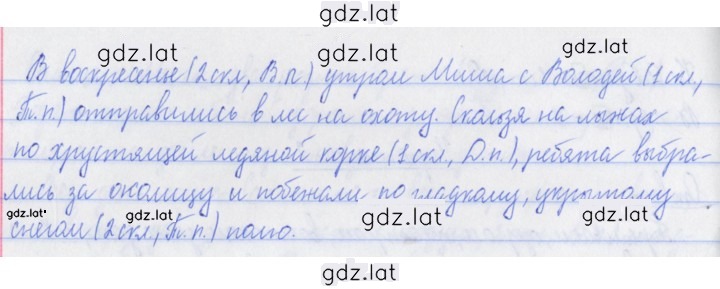 gdz.lat
gdz.lat gdz.lat gdz.lat
В воскресенье (2 скл, В.п.) утром Миша с Володей (1 скл,
Т.п.) отправились в лес на охоту. Скользя на лыжах
по хрустящей ледяной корке (1 скл, Д.п.), ребята выбра-
gdz.lat gdz.lat gdz.lat
лись за околицу и побежали по гладкому, укрытому
gdz.lat gdz.lat gdz.lat
снегом (2 скл, Т.п.) полю.
gdz.lat